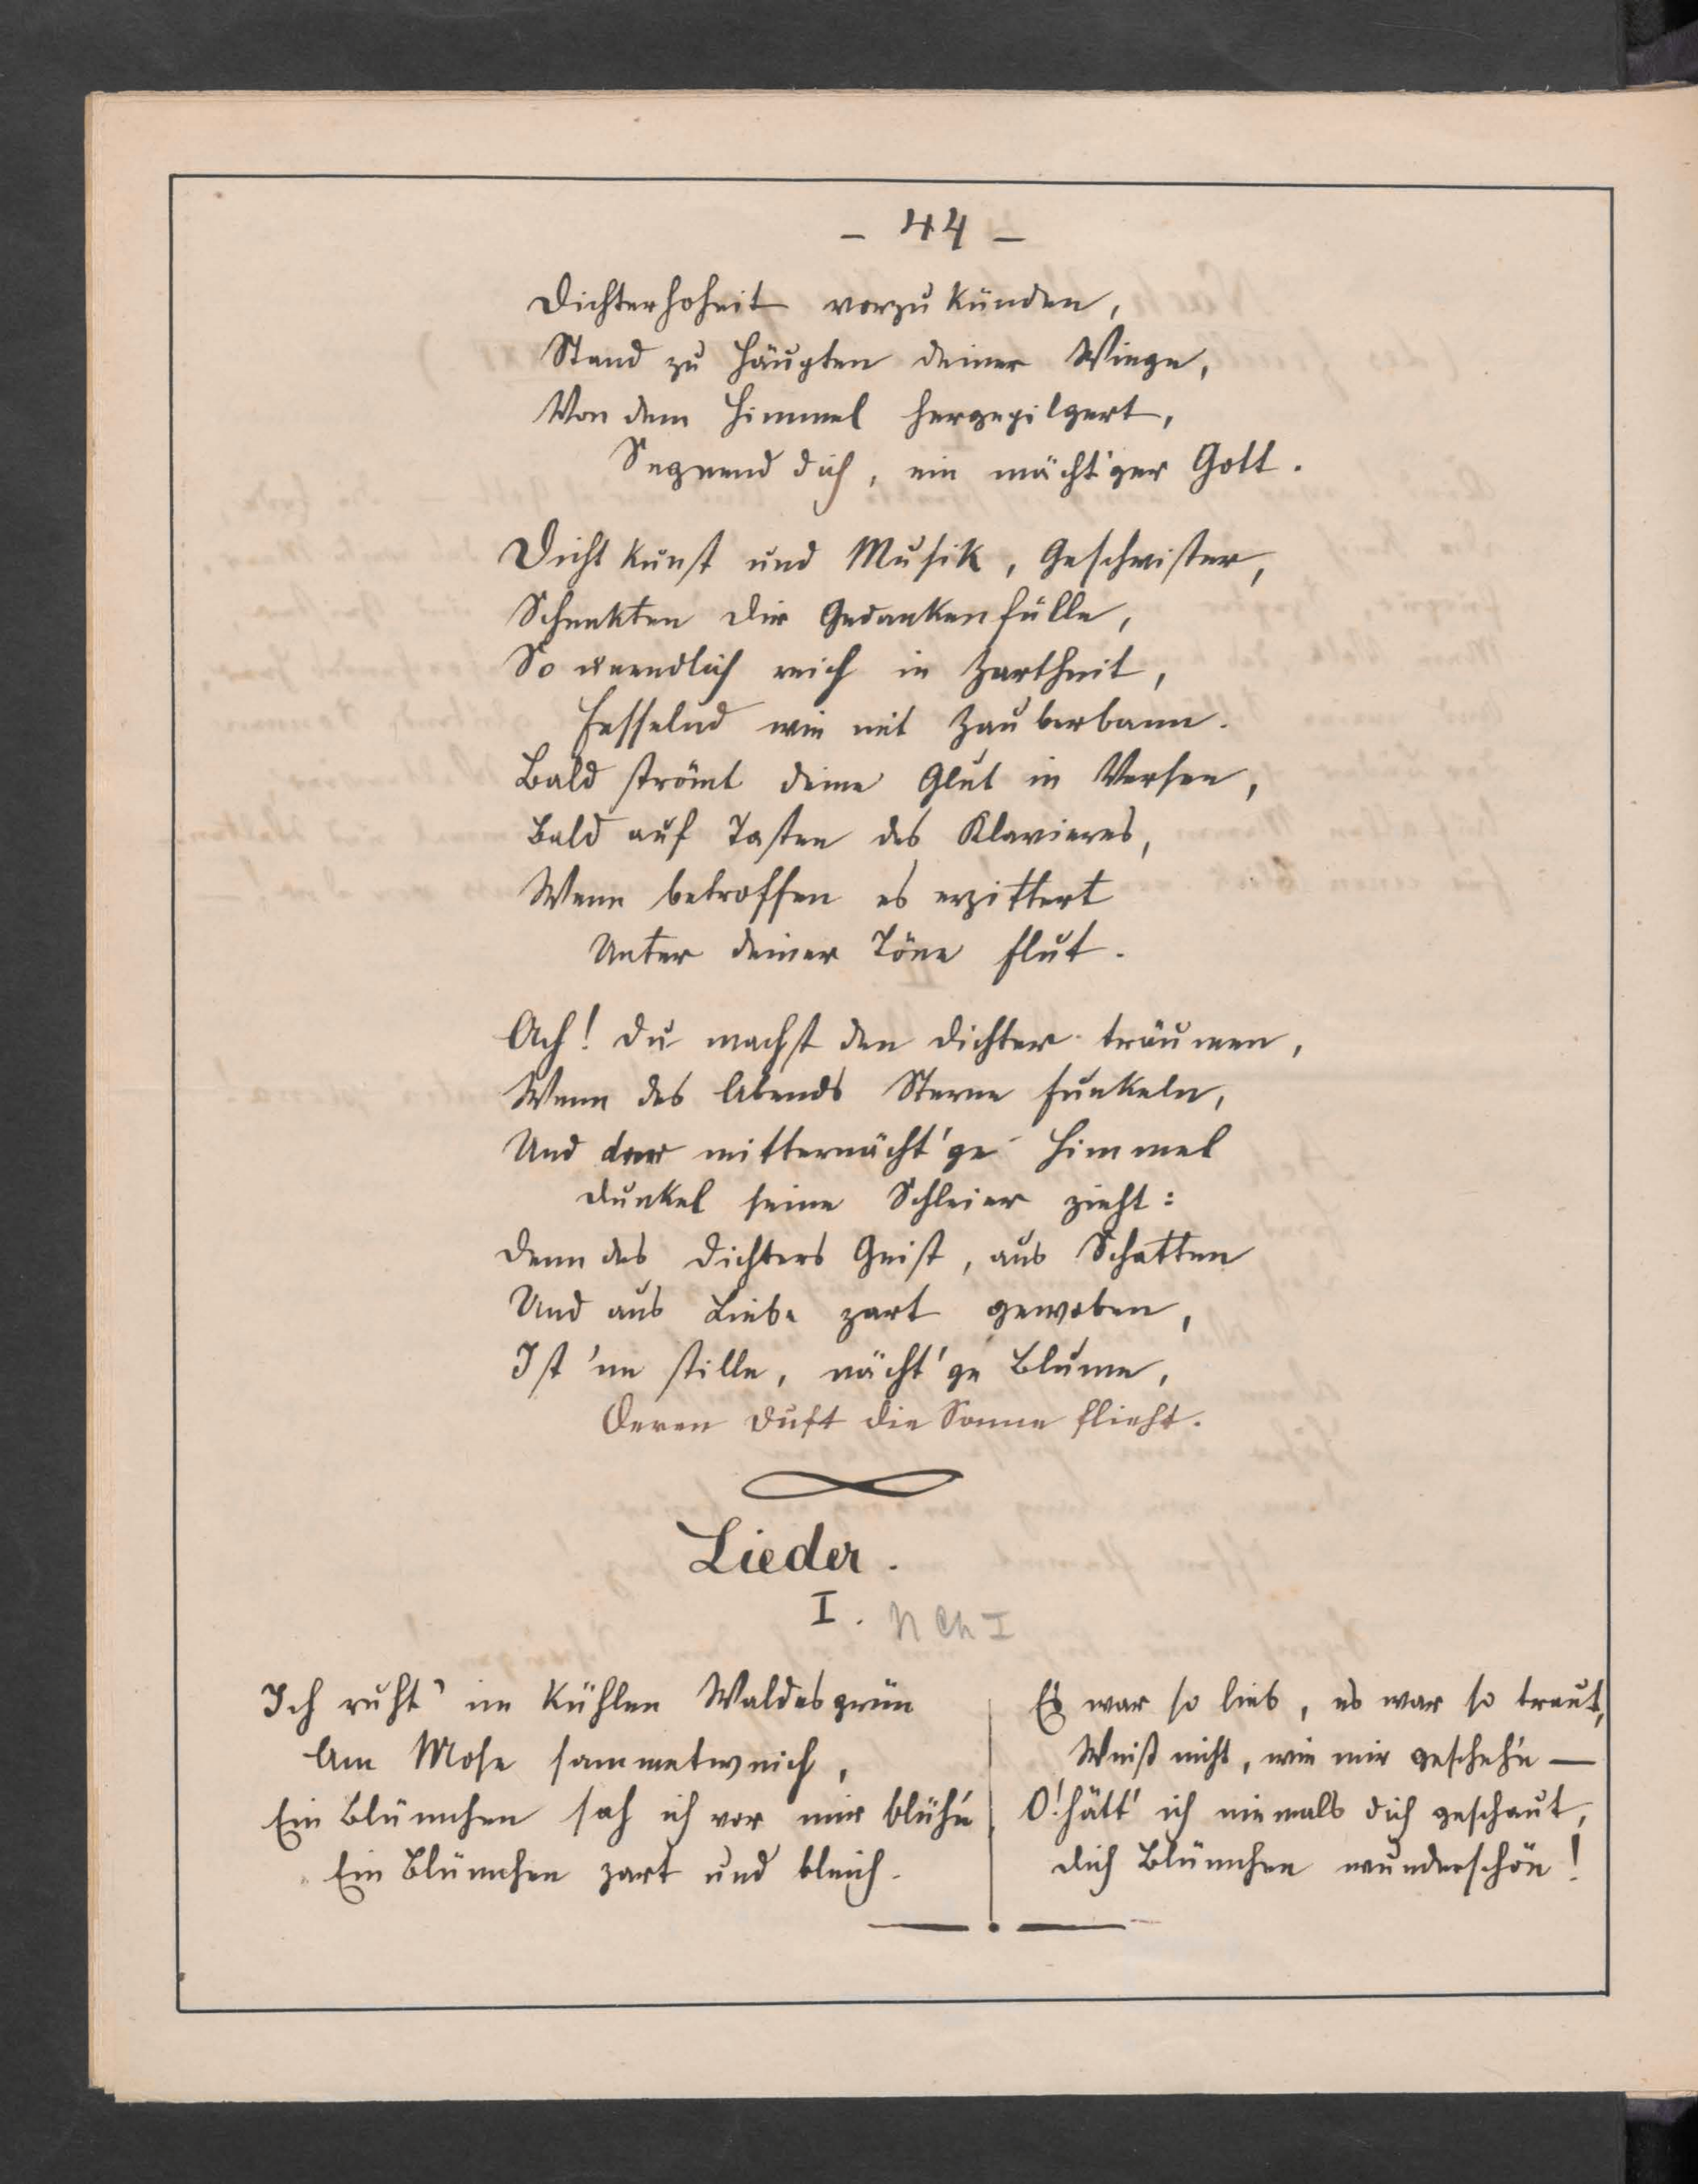 - 44 -
Dichterhoheit vorzukünden,
Stand zu Häupten deiner Wiege,
Von dem Himmel hergepilgert,
Segnend dich, ein mächt'ger Gott.
Dichtkunst und Musik, Geschwister,
Schenkten dir Gedankenfülle,
So unendlich reich in Zartheit,
Fesselnd wie mit Zauberbann.
Bald strömt deine Glut in Versen,
Bald auf Tasten des Klavieres,
Wenn betroffen es erzittert
Unter deiner Töne Flut.
Ach! du machst den Dichter träumen,
Wenn des Abends Sterne funkeln,
Und der mitternächt'ge Himmel
Dunkel seine Schleier zieht:
Denn des Dichters Geist, aus Schatten
Und aus Liebe zart gewoben,
Ist 'ne stille, nächt'ge Blume,
Deren Duft die Sonne flieht.
Lieder.
I. N Ch I
Ich ruht' im kühlen Waldesgrün
Am Mose sammetweich,
Ein Blümchen sah ich vor mir blüh'n
Ein Blümchen zart und bleich.
Es war so lieb, es war so traut,
Weiß nicht, wie mir gescheh'n —
O! hätt' ich niemals dich geschaut,
Dich Blümchen wunderschön!